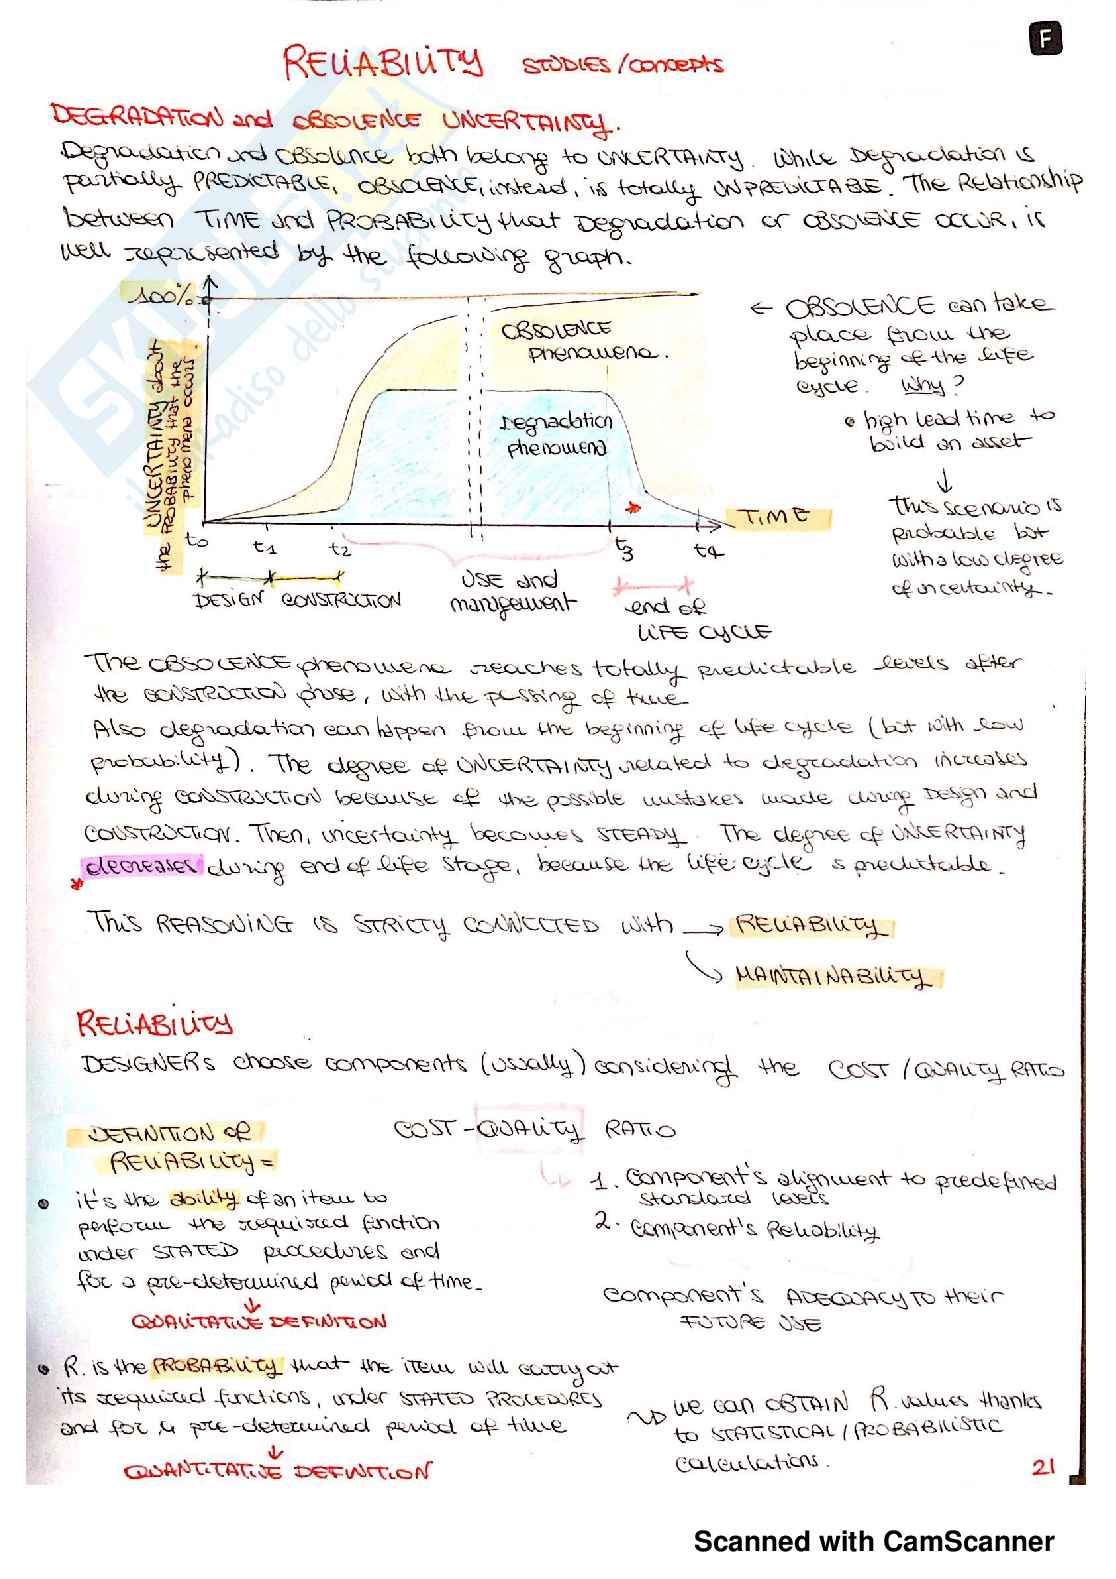 F
RELIABILITY STUDIES/concepts
DEGRADATION and OBSOLENCE UNCERTAINTY.
Degradation and OBSOLENCE both belong to UNCERTAINTY. While Degradation is
partially PREDICTABLE, OBSOLENCE, instead, is totally UNPREDICTABLE. The Relationship
between TIME and PROBABILITY that Degradation or OBSOLENCE OCCUR, is
well represented by the following graph.
100%
UNCERTAINTY about
the PROBABILITY that the
phenomena occurs.
OBSOLENCE
phenomena.
Degradation
phenomena
TIME
t0 t1 t2 t3 t4
DESIGN CONSTRUCTION
USE and
management
end of
LIFE CYCLE
← OBSOLENCE can take
place from the
beginning of the life
cycle. Why?
• high lead time to
build an asset
↓
This scenario is
probable but
with a low degree
of uncertainty.
The OBSOLENCE phenomena reaches totally predictable levels after
the CONSTRUCTION phase, with the passing of time.
Also degradation can happen from the beginning of life cycle (but with low
probability). The degree of UNCERTAINTY related to degradation increases
during CONSTRUCTION because of the possible mistakes made during Design and
CONSTRUCTION. Then, uncertainty becomes STEADY. The degree of UNCERTAINTY
decreases during end of life stage, because the life cycle is predictable.
This REASONING IS STRICTY CONNECTED with → RELIABILITY
MAINTAINABILITY
RELIABILITY
DESIGNERS choose components (usually) considering the COST/QUALITY RATIO
DEFINITION of
RELIABILITY =
• it's the ability of an item to
perform the required function
under STATED procedures and
for a pre-determined period of time.
↓
QUALITATIVE DEFINITION
COST-QUALITY RATIO
1. component's alignment to predefined
standard levels
2. component's Reliability
component's ADEQUACY TO their
FUTURE USE
• R. is the PROBABILITY that the item will carry out
its required functions, under STATED PROCEDURES
and for a pre-determined period of time
↓
QUANTITATIVE DEFINITION
we can OBTAIN R. values thanks
to STATISTICAL/PROBABILISTIC
calculations.
21
Scanned with CamScanner